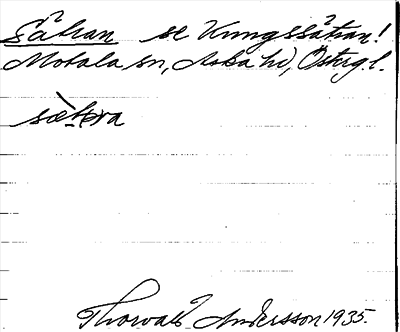 Såtran se Kungssåtran!
Motala sn, Aska hd, Östergl.
sætra
Thorvald Andersson 1935.